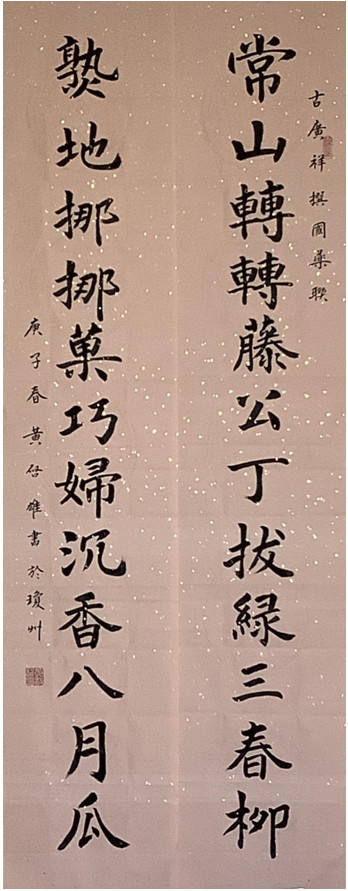 古廣祥撰囯藥聯
常山轉轉藤公丁拔緑三春柳
熟地挪挪菓巧婦沉香八月瓜
庚子春黄启雄書於瓊州